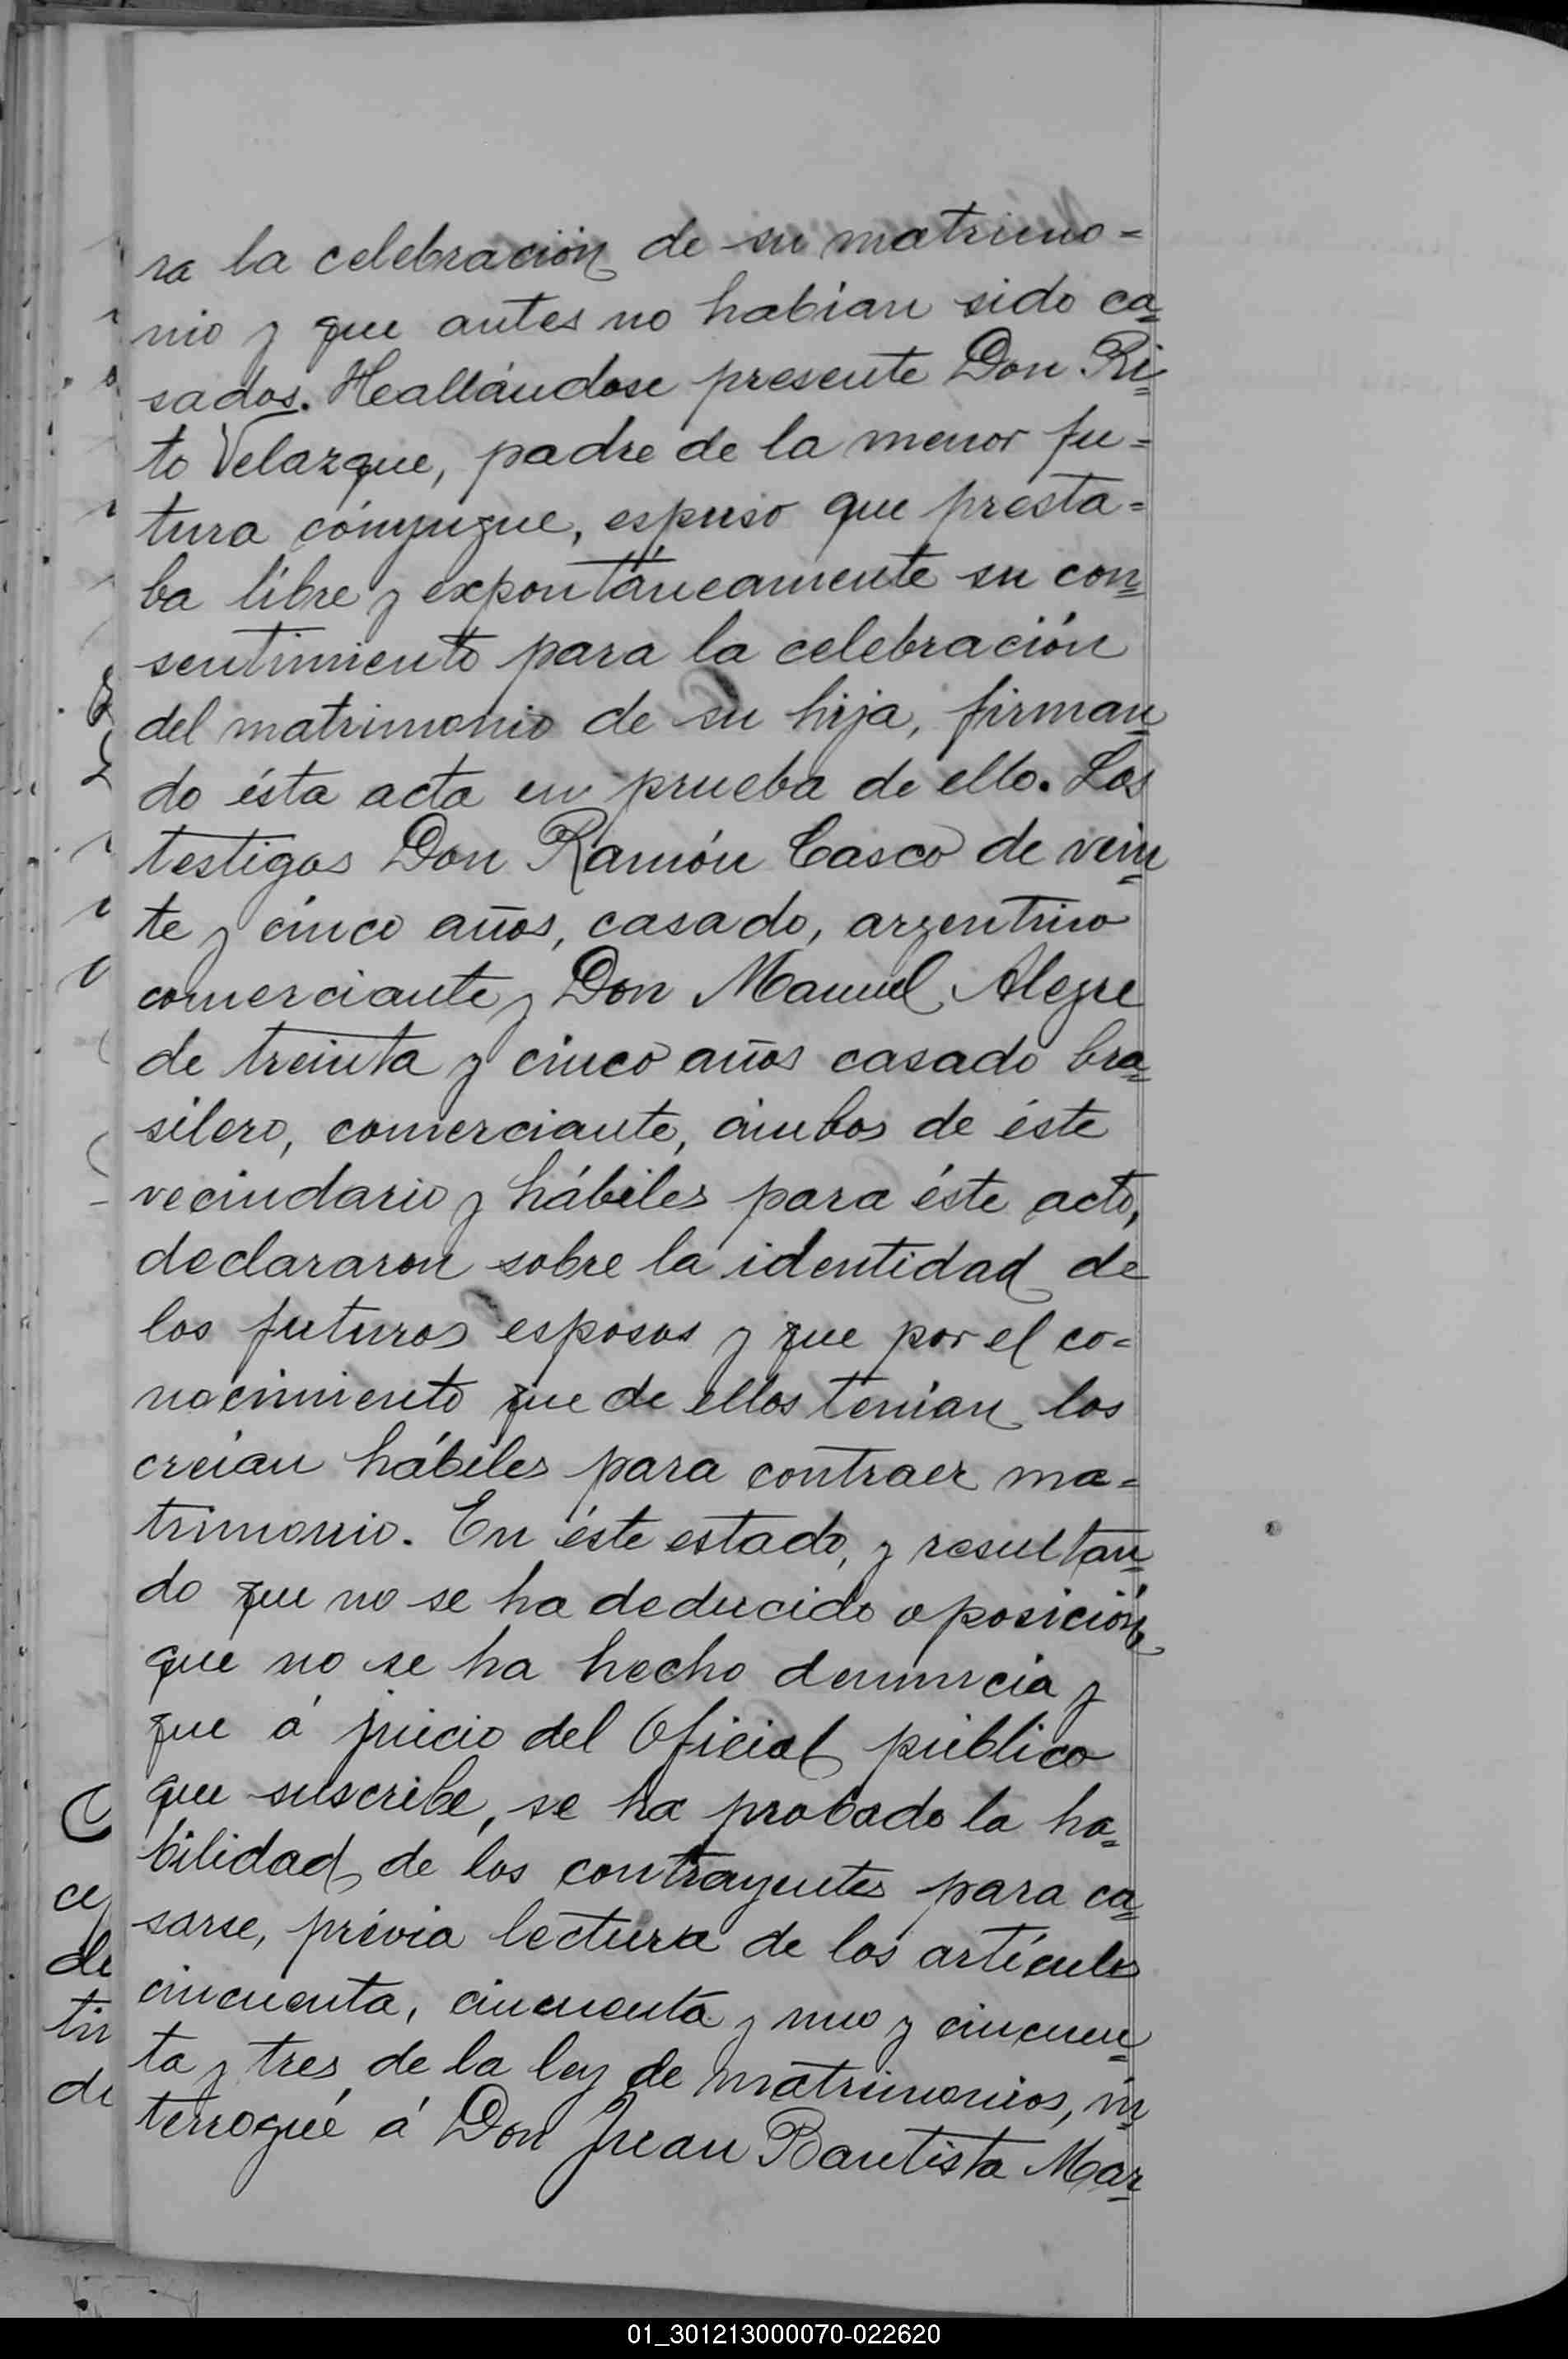 ra la celebración de su matrimo=
nio y que antes no habían sido ca=
sados. Heallándose presente Don Ri=
to Velazque, padre de la menor fu=
tura cónyugue, espuso que presta=
ba libre y expontáneamente su con=
sentimiento para la celebración
del matrimonio de su hija, firman=
do ésta acta en prueba de ello. Los
testigos Don Ramón Casco de vein=
te y cinco años, casado, argentino
comerciante y Don Manuel Alegre
de treinta y cinco años casado bra=
silero, comerciante, ámbos de éste
vecindario y hábiles para éste acto,
declararon sobre la identidad de
los futuros esposos y que por el co=
nocimiento que de ellos tenían los
creían hábiles para contraer ma=
trimonio. En éste estado, y resultan=
do que no se ha deducido oposición
que no se ha hecho denuncia y
que á juicio del Oficial público
que suscribe, se ha probado la ha=
bilidad de los contrayentes para ca=
sarse, prévia lectura de los artículos
cincuenta, cincuenta y uno y cincuen=
ta y tres de la ley de matrimonios, in=
terrogué á Don Juan Bautista Mar=
01_301213000070-022620